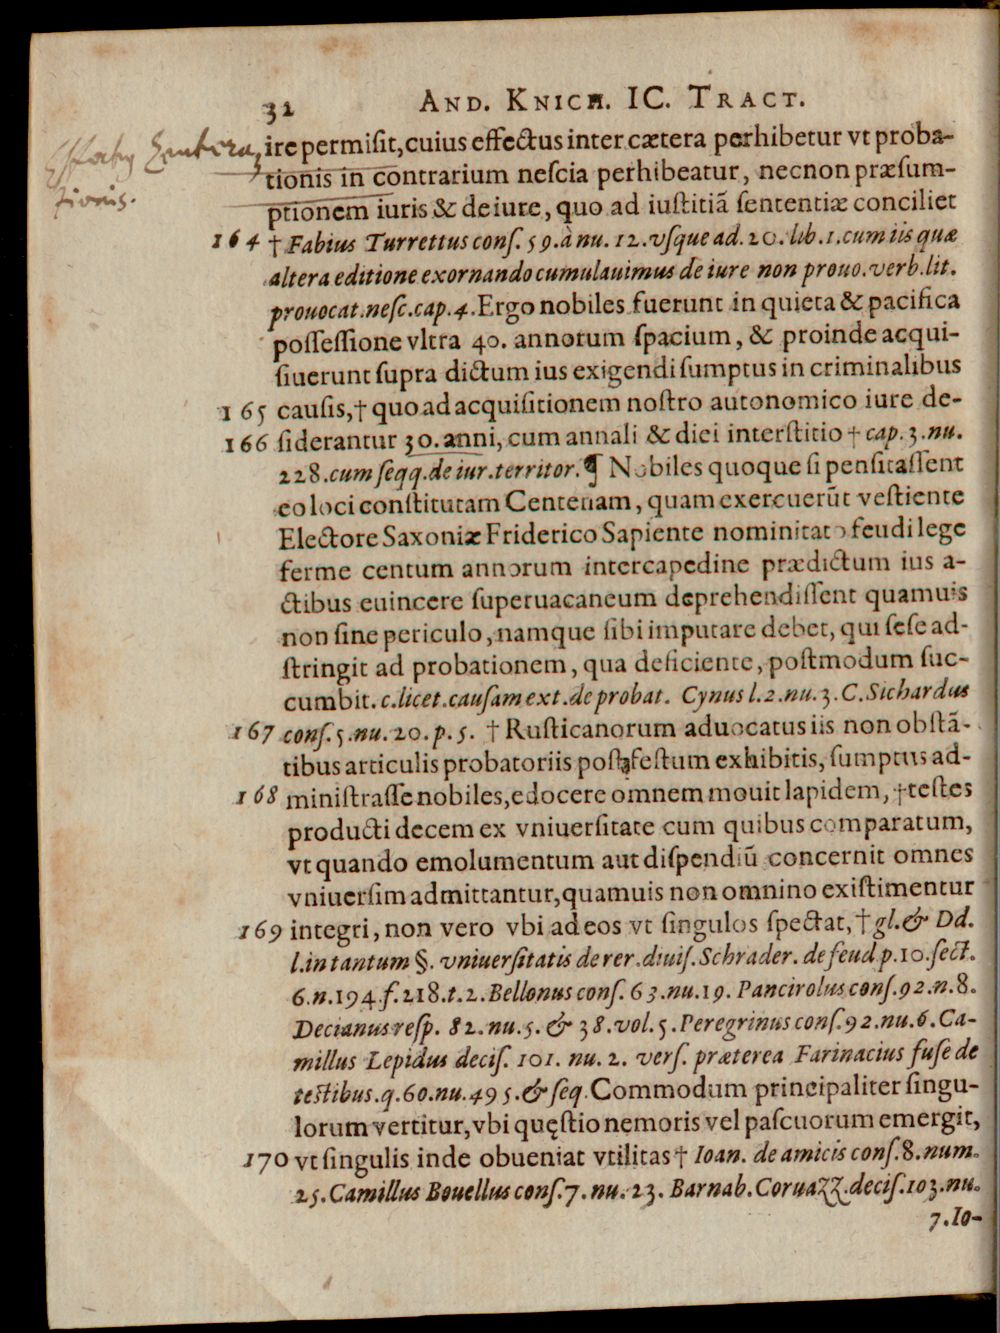 32 AND. KNICH. IC. TRACT.
ire permiſit, cuius effectus inter cætera perhibetur vt proba-
tionis in contrarium neſcia perhibeatur, necnon præſum-
ptionem iuris & de iure, quo ad iuſtitiã ſententiæ conciliet
164 † Fabius Turrettus conſ. 59. à nu. 12. vſque ad. 20. lib. 1. cum iis quæ
altera editione exornando cumulauimus de iure non prouo. verb. lit.
prouocat. neſc. cap. 4. Ergo nobiles fuerunt in quieta & pacifica
poſſeſſione vltra 40. annorum ſpacium, & proinde acqui-
ſiuerunt ſupra dictum ius exigendi ſumptus in criminalibus
165 cauſis, † quo ad acquiſitionem noſtro autonomico iure de-
166 ſiderantur 30. anni, cum annali & diei interſtitio † cap. 3. nu.
228. cum ſeqq. de iur. territor. ¶ Nobiles quoque ſi penſitaſſent
eo loci conſtitutam Centenam, quam exercuerũt veſtiente
Electore Saxoniæ Friderico Sapiente nominitato feudi lege
ferme centum annorum intercapedine prædictum ius a-
ctibus euincere ſuperuacaneum deprehendiſſent quamuis
non ſine periculo, namque ſibi imputare debet, qui ſeſe ad-
ſtringit ad probationem, qua deficiente, poſtmodum ſuc-
cumbit. c. licet. cauſam ext. de probat. Cynus l. 2. nu. 3. C. Sichardus
167 conſ. 5. nu. 20. p. 5. † Ruſticanorum aduocatus iis non obſtã-
tibus articulis probatoriis poſt feſtum exhibitis, ſumptus ad-
168 miniſtraſſe nobiles, edocere omnem mouit lapidem, † teſtes
producti decem ex vniuerſitate cum quibus comparatum,
vt quando emolumentum aut diſpendiũ concernit omnes
vniuerſim admittantur, quamuis non omnino exiſtimentur
169 integri, non vero vbi ad eos vt ſingulos ſpectat, † gl. & Dd.
l. in tantum §. vniuerſitatis de rer. diuiſ. Schrader. de feud p. 10. ſect.
6. n. 194. f. 218. t. 2. Bellonus conſ. 63. nu. 19. Pancirolus conſ. 92. n. 8.
Decianus reſp. 82. nu. 5. & 38. vol. 5. Peregrinus conſ. 92. nu. 6. Ca-
millus Lepidus deciſ. 101. nu. 2. verſ. præterea Farinacius fuſe de
teſtibus. q. 60. nu. 495. & ſeq. Commodum principaliter ſingu-
lorum vertitur, vbi quęſtio nemoris vel paſcuorum emergit,
170 vt ſingulis inde obueniat vtilitas † Ioan. de amicis conſ. 8. num.
25. Camillus Bouellus conſ. 7. nu. 23. Barnab. Coruazz. deciſ. 103. nu.
7. Io-